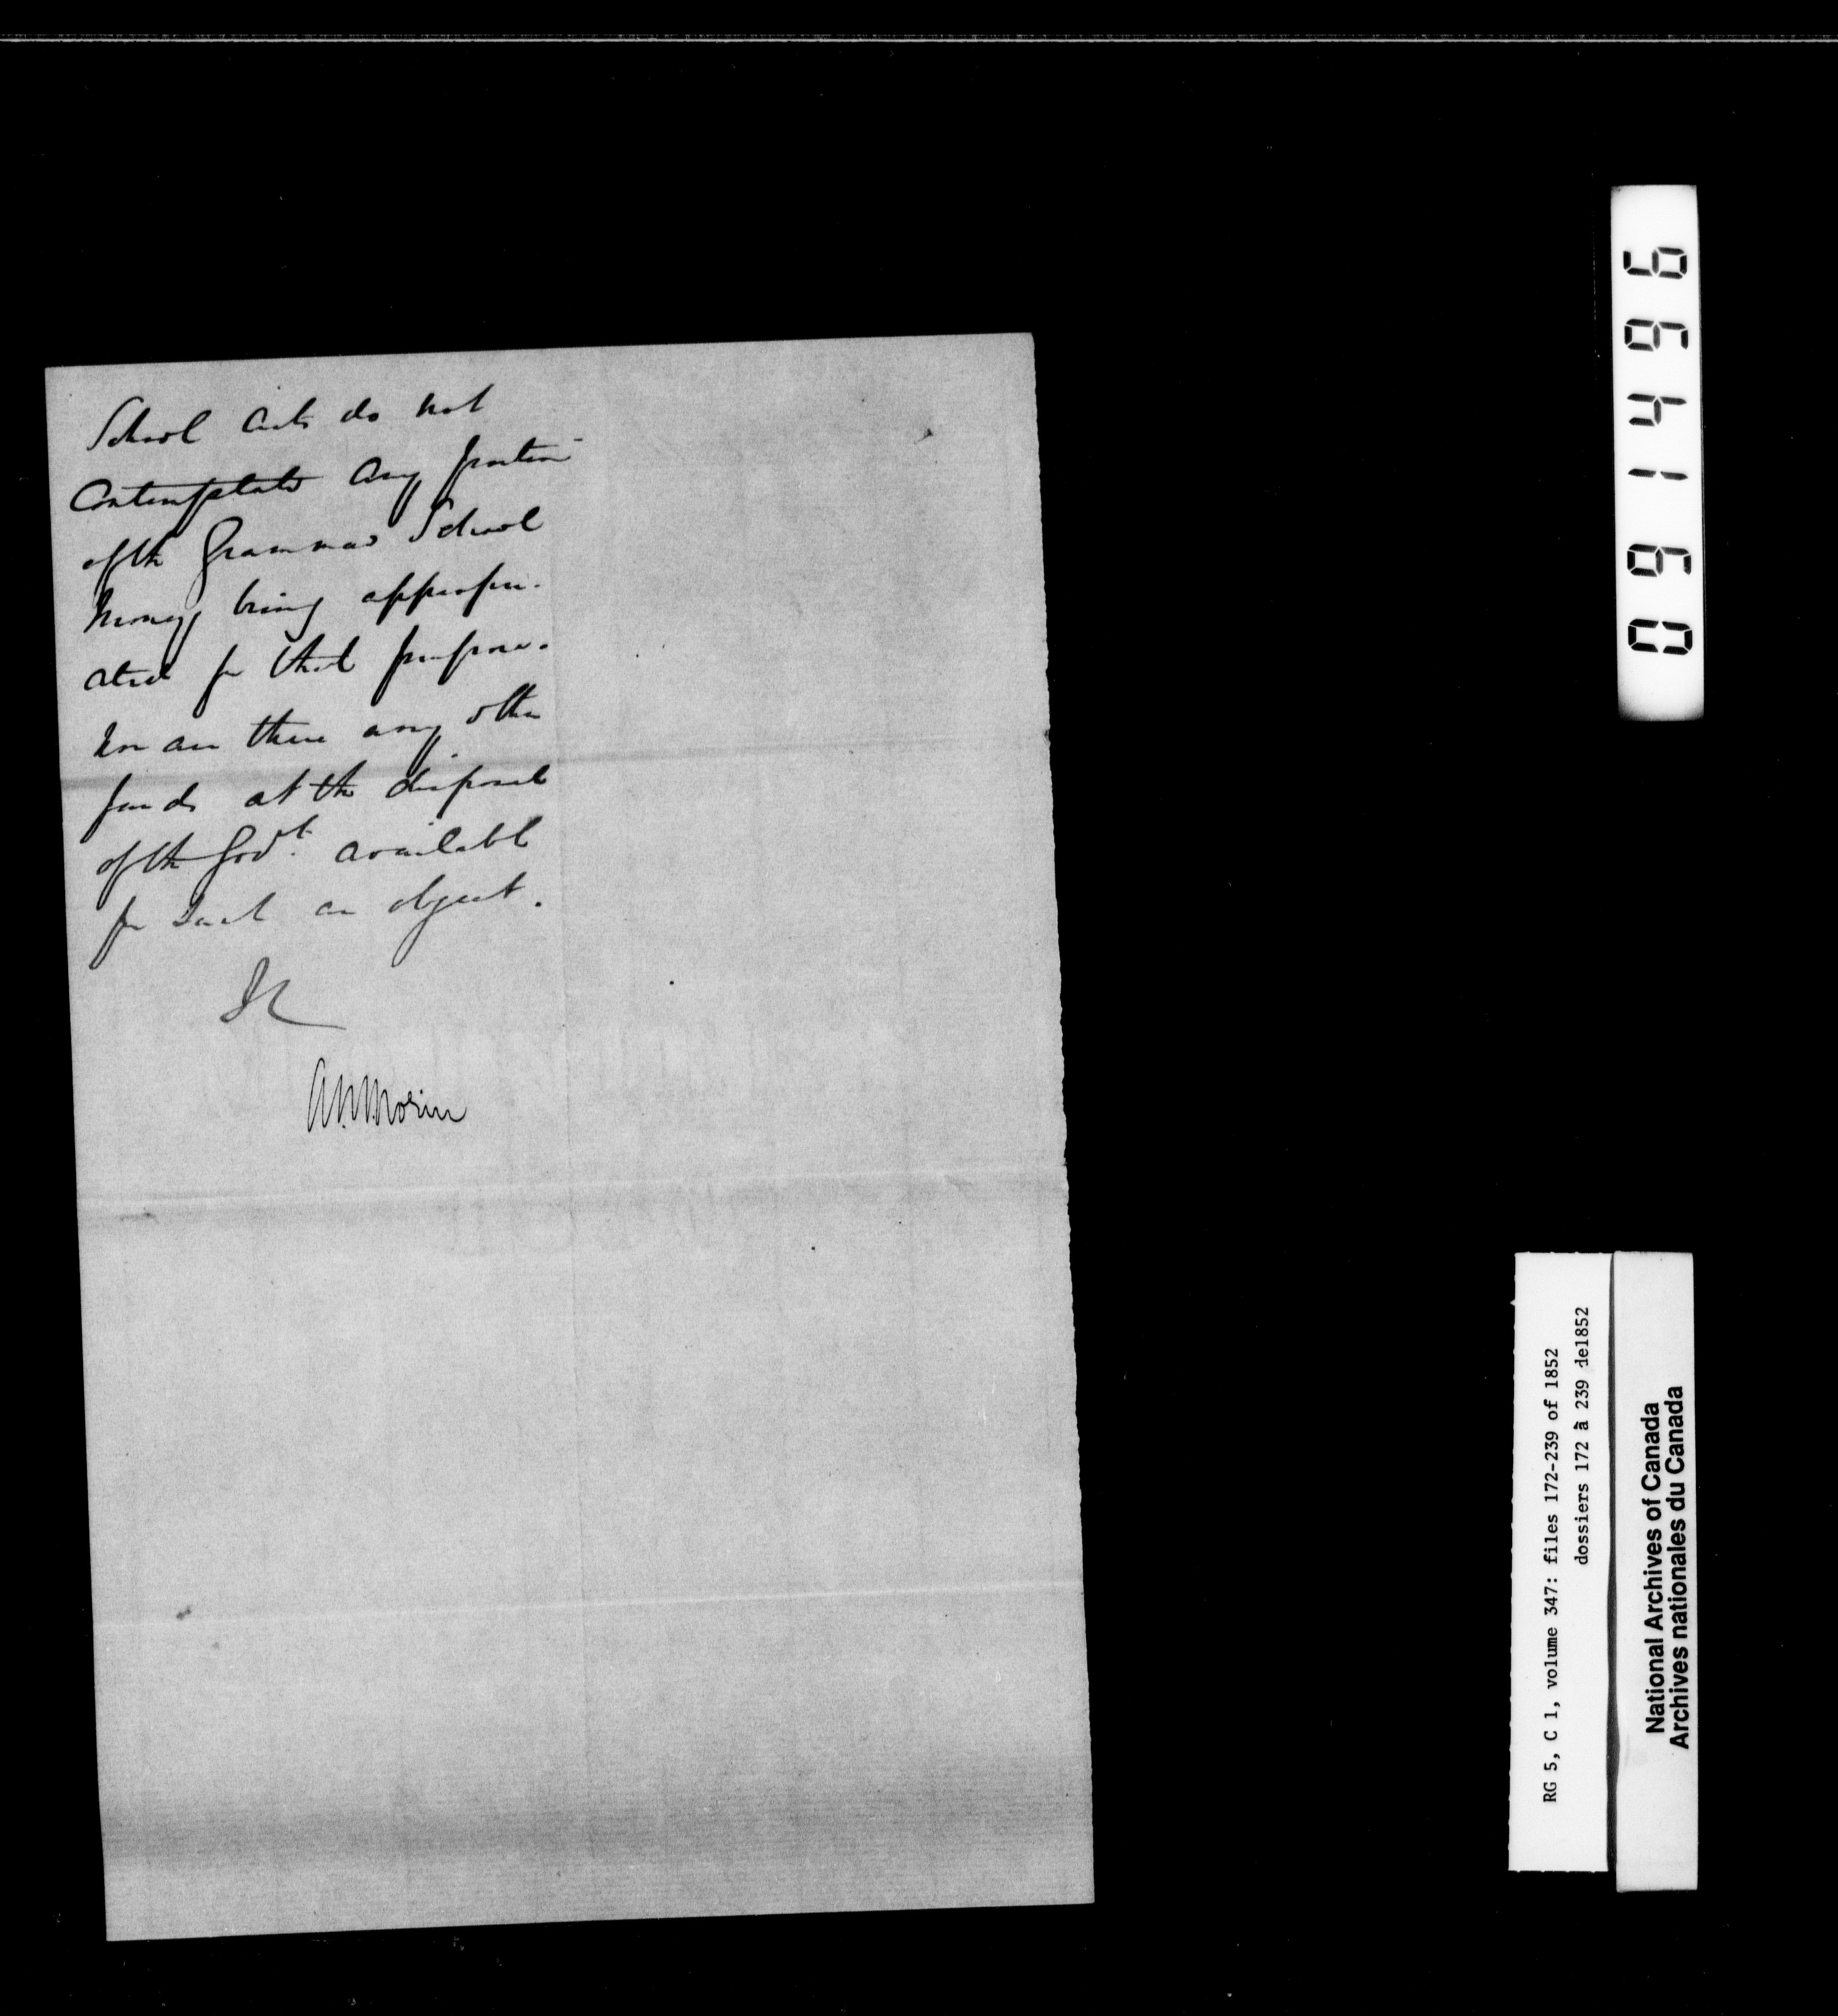 School Acts do not
Contemplate any portion
of the Grammar School
Money being appropri-
ated for that purpose.
Nor are there any other
funds at the disposal
of the Govt. available
for such an object.
A.N. Morin
091496
RG 5, C 1, volume 347: files 172-239 of 1852
dossiers 172 à 239 de1852
National Archives of Canada
Archives nationales du Canada